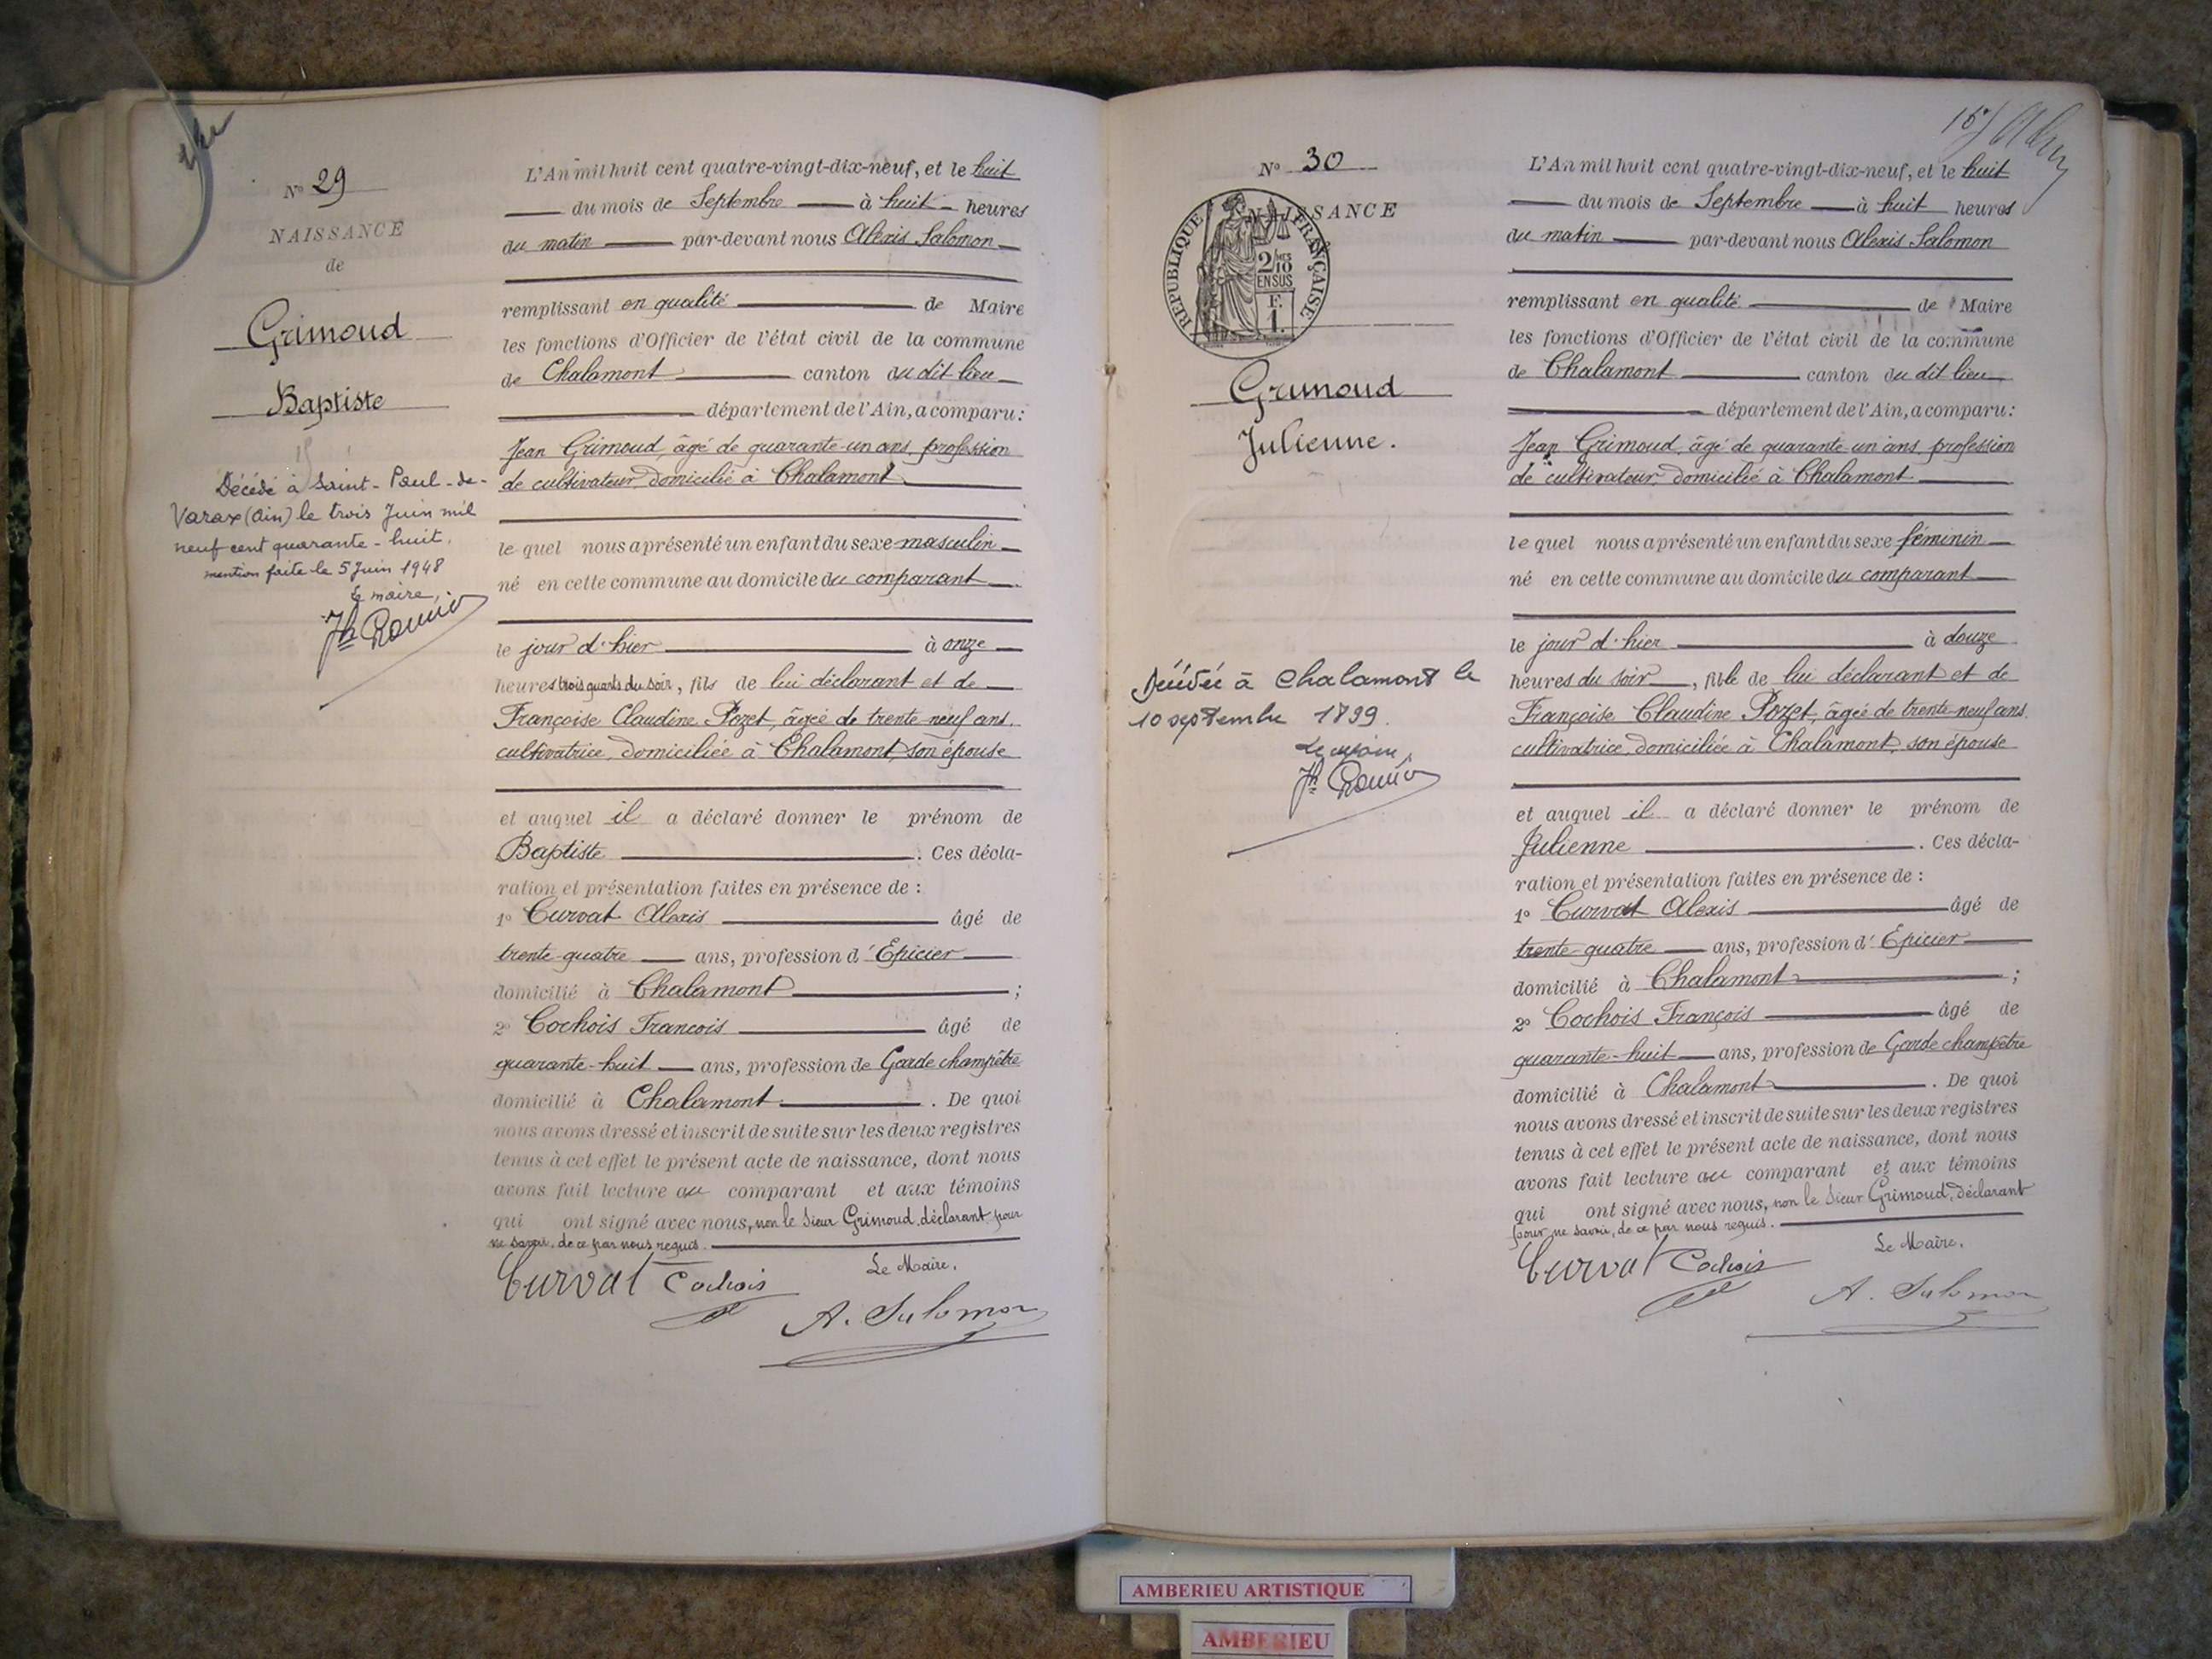 N° 29
NAISSANCE
de
Grimoud
Baptiste
Décédé à Saint-Paul-de-
Varax (Ain) le trois Juin mil
neuf cent quarante-huit.
mention faite le 5 Juin 1948
Le maire,
L'An mil huit cent quatre-vingt-dix-neuf, et le huit
du mois de Septembre à huit heures
du matin par-devant nous Alexis Salomon
remplissant en qualité de Maire
les fonctions d'Officier de l'état civil de la commune
de Chalamont canton du dit lieu
département de l'Ain, a comparu:
Jean Grimoud, âgé de quarante-un ans, profession
de cultivateur, domicilié à Chalamont
le quel nous a présenté un enfant du sexe masculin
né en cette commune au domicile du comparant
le jour d'hier à onze
heures trois quarts du soir, fils de lui déclarant et de
Françoise Claudine Pozet, âgée de trente-neuf ans.
cultivatrice, domiciliée à Chalamont, son épouse
et auquel il a déclaré donner le prénom de
Baptiste. Ces décla-
ration et présentation faites en présence de :
1° Curvat Alexis âgé de
trente-quatre ans, profession d'Epicier
domicilié à Chalamont ;
2° Cochois Francois âgé de
quarante-huit ans, profession de Garde champêtre
domicilié à Chalamont. De quoi
nous avons dressé et inscrit de suite sur les deux registres
tenus à cet effet le présent acte de naissance, dont nous
avons fait lecture au comparant et aux témoins
qui ont signé avec nous, non le Sieur Grimoud, déclarant pour
ne savoir, de ce par nous requis.
Le Maire,
Curvat Cochois
A. Salomon
N° 30
NAISSANCE
REPUBLIQUE FRANÇAISE
2/10 MES
EN SUS
F.
1.
Grimoud
Julienne.
Décédée à Chalamont le
10 septembre 1899.
Le maire,
L'An mil huit cent quatre-vingt-dix-neuf, et le huit
du mois de Septembre à huit heures
du matin par-devant nous Alexis Salomon
remplissant en qualité de Maire
les fonctions d'Officier de l'état civil de la commune
de Chalamont canton du dit lieu
département de l'Ain, a comparu:
Jean Grimoud, âgé de quarante-un ans, profession
de cultivateur, domicilié à Chalamont
le quel nous a présenté un enfant du sexe féminin
né en cette commune au domicile du comparant
le jour d'hier à douze
heures du soir, fille de lui déclarant et de
Françoise Claudine Pozet, âgée de trente-neuf ans.
cultivatrice, domiciliée à Chalamont, son épouse
et auquel il a déclaré donner le prénom de
Julienne. Ces décla-
ration et présentation faites en présence de :
1° Curvat Alexis âgé de
trente-quatre ans, profession d'Epicier
domicilié à Chalamont ;
2° Cochois François âgé de
quarante-huit ans, profession de Garde champêtre
domicilié à Chalamont. De quoi
nous avons dressé et inscrit de suite sur les deux registres
tenus à cet effet le présent acte de naissance, dont nous
avons fait lecture au comparant et aux témoins
qui ont signé avec nous, non le Sieur Grimoud, déclarant
pour ne savoir, de ce par nous requis.
Le Maire,
Curvat Cochois
A. Salomon
AMBERIEU ARTISTIQUE
AMBERIEU